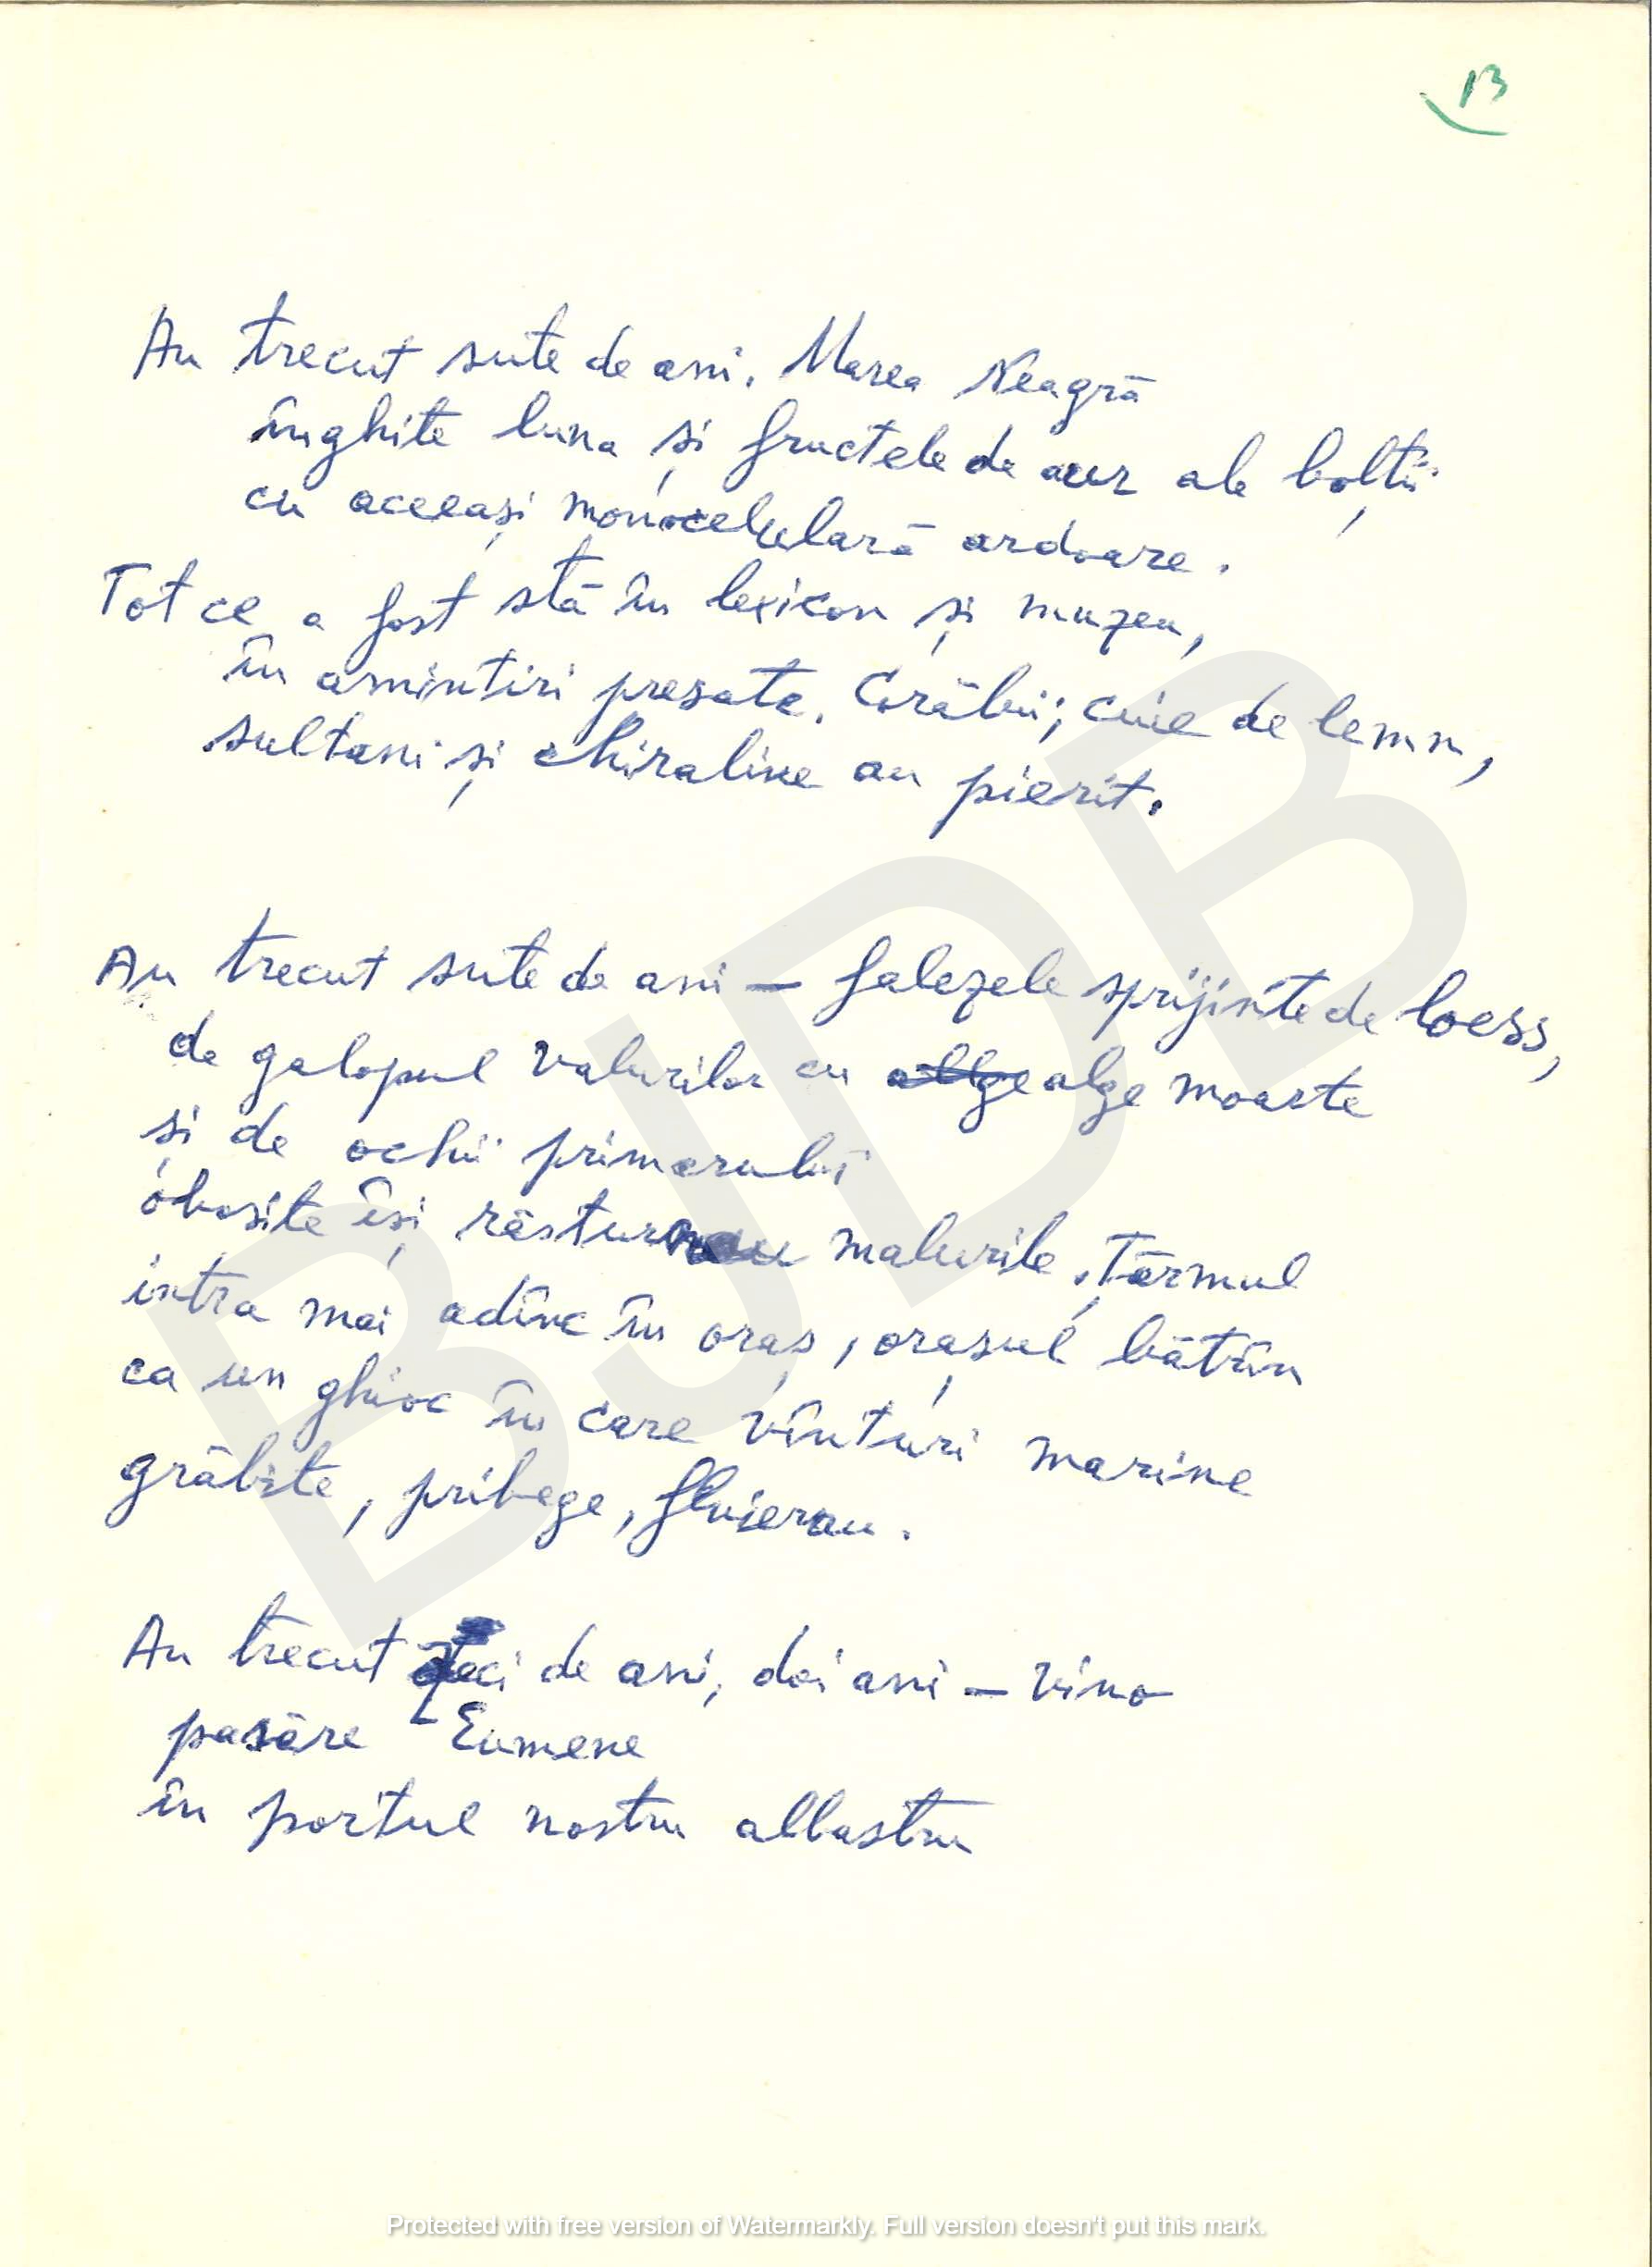 13
Au trecut sute de ani. Marea Neagră
înghite luna și fructele de aur ale bolții
cu aceeași monocelulară ardoare.
Tot ce a fost stă în lexicon și muzeu,
în amintiri presate. Corăbii; cuie de lemn,
sultani și chiraline au pierit.
Au trecut sute de ani — falezele sprijinite de loess,
de galopul valurilor cu alge moarte
și de ochii primarului
obosite își răsturnau malurile. Țărmul
intra mai adînc în oraș, orașul bătrîn
ca un ghioc în care vînturi marine
grăbite, pribege, fluierau.
Au trecut zeci de ani, doi ani — vino
pasăre Eumene
în portul nostru albastru
BJDB
Protected with free version of Watermarkly. Full version doesn't put this mark.